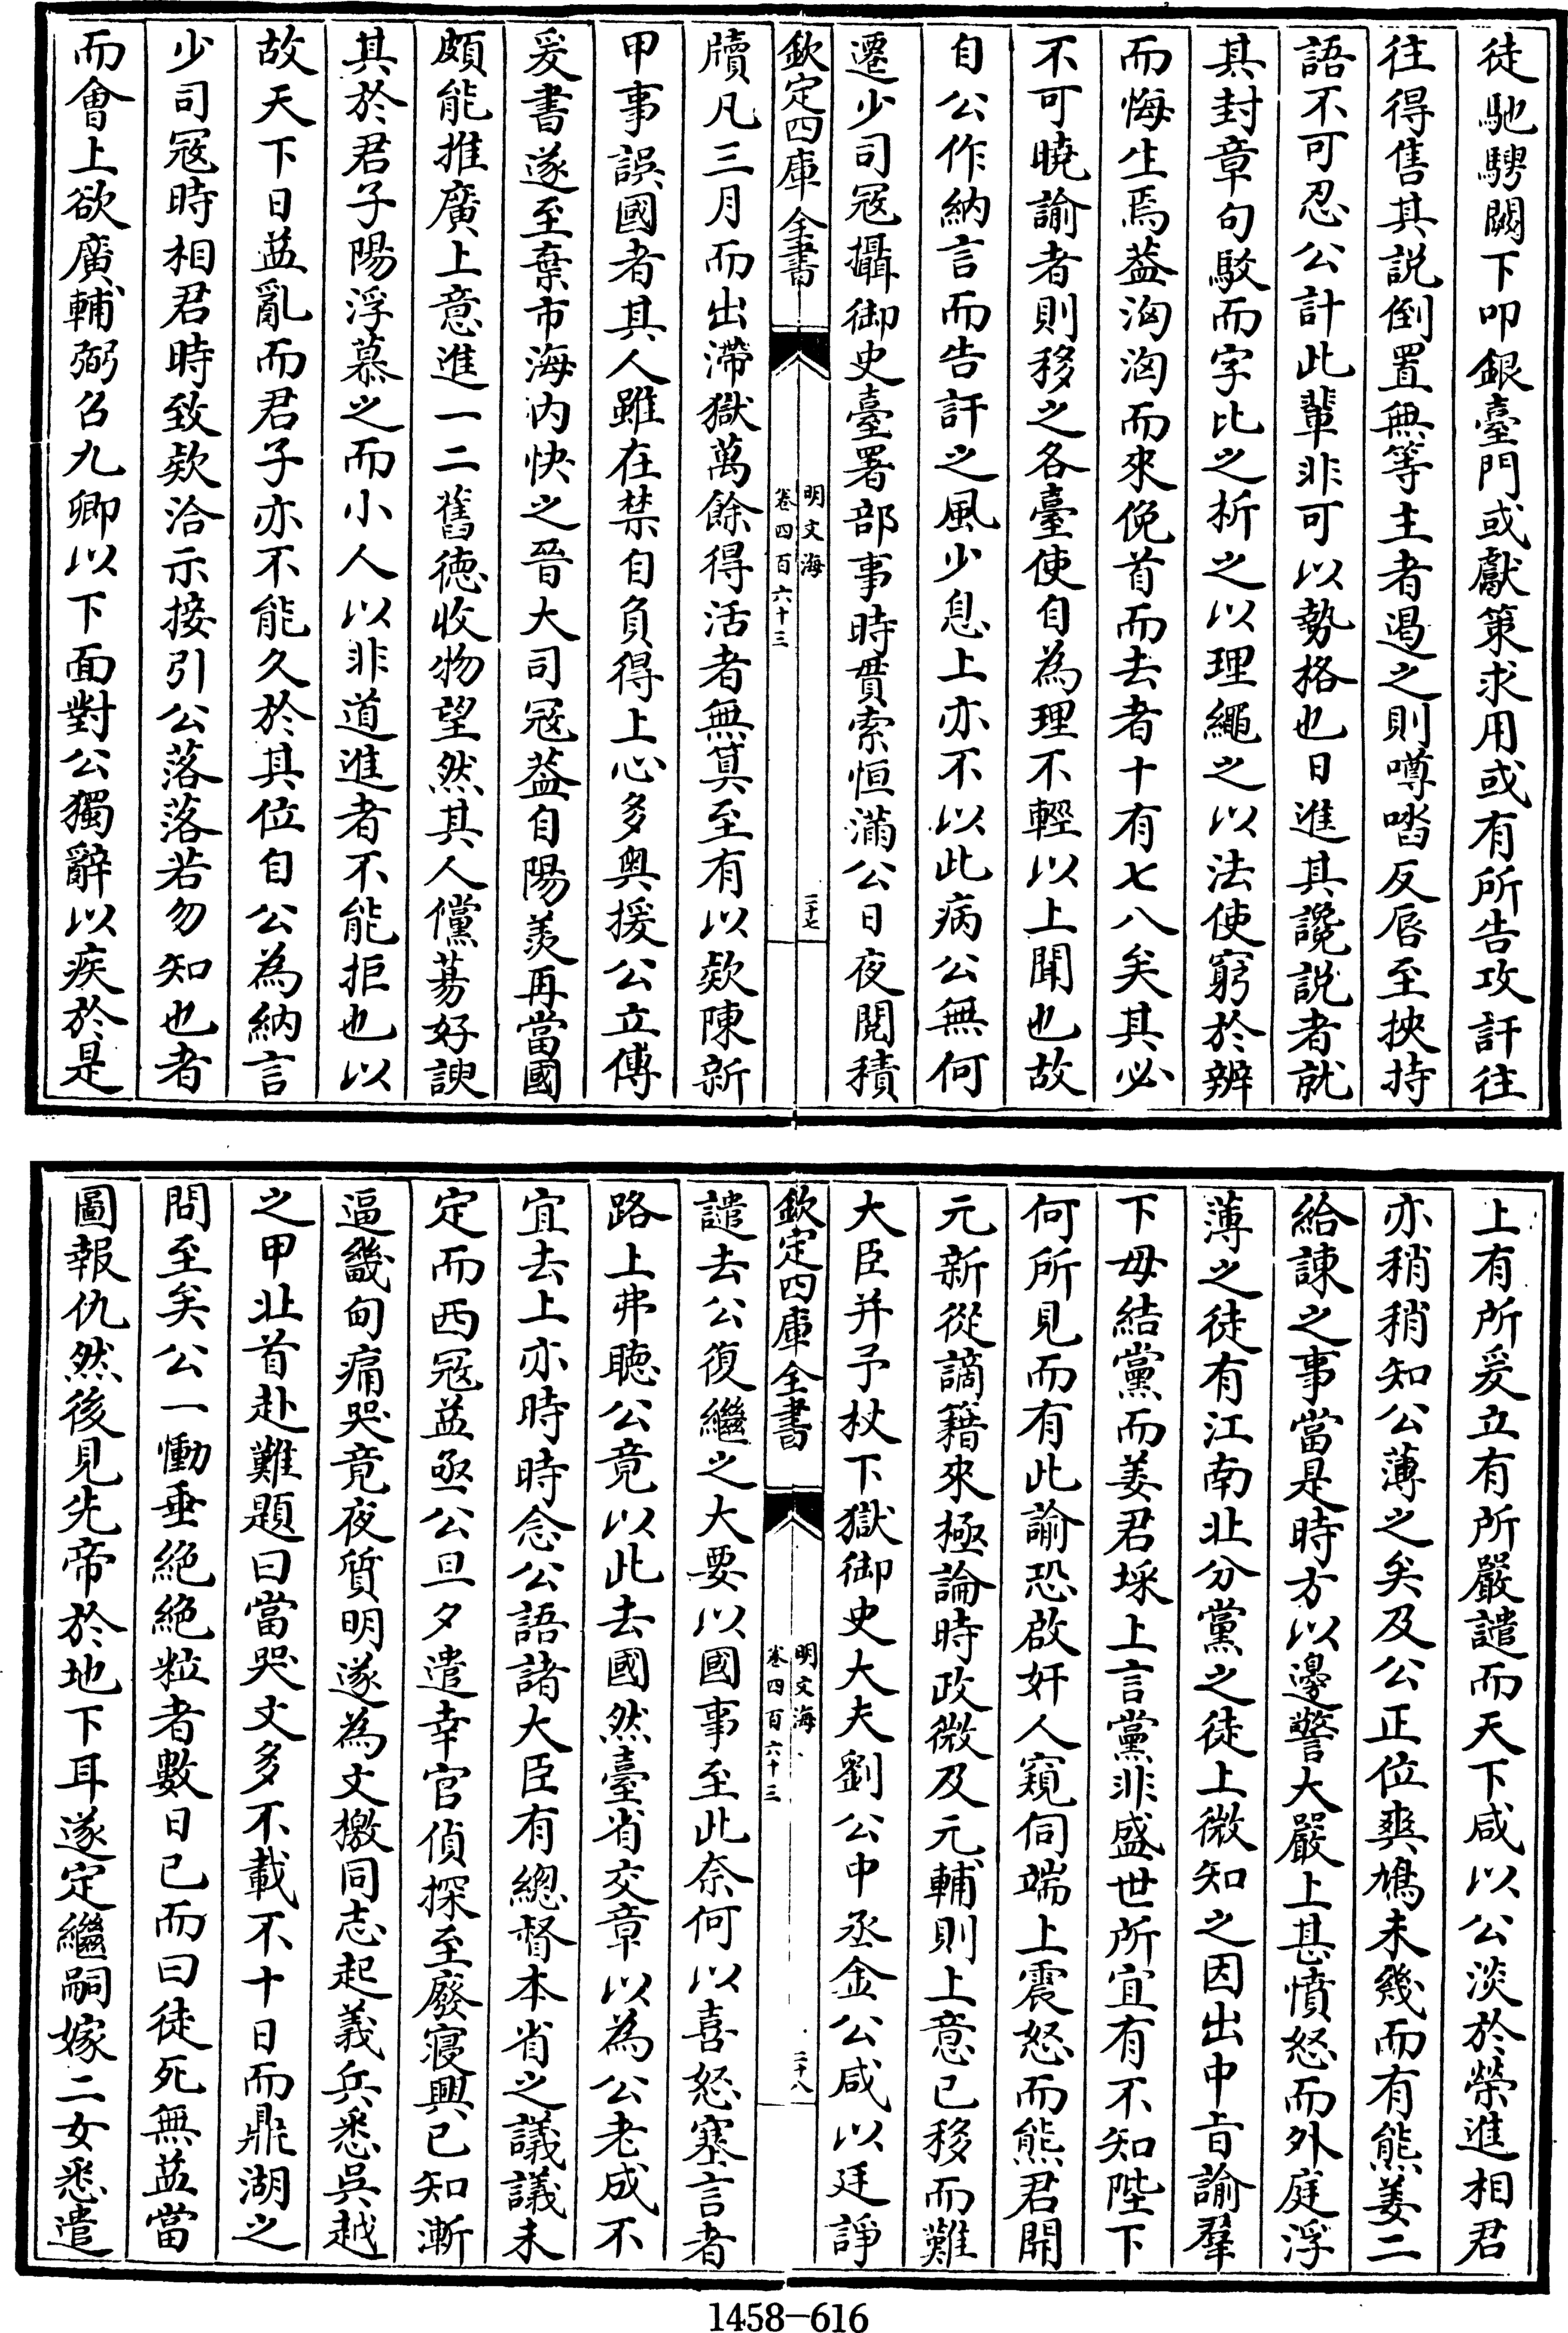 徒馳騁闕下叩銀臺門或獻策求用或有所告攻訐往
往得售其説倒置無等主者遏之則噂喈反唇至挾持
語不可忍公計此輩非可以勢格也日進其讒説者就
其封章句駁而字比之析之以理繩之以法使窮於辨
而悔生焉葢洶洶而來俛首而去者十有七八矣其必
不可曉諭者則移之各臺使自為理不輕以上聞也故
自公作納言而告訐之風少息上亦不以此病公無何
遷少司寇攝御史臺署部事時貫索恒滿公日夜閲積
欽定四庫全書
明文海
卷四百六十三
二十七
牘凡三月而出滯獄萬餘得活者無算至有以欵陳新
甲事誤國者其人雖在禁自負得上心多奥援公立傳
爰書遂至棄市海内快之晉大司寇葢自陽羡再當國
頗能推廣上意進一二舊徳收物望然其人儻蕩好諛
其於君子陽浮慕之而小人以非道進者不能拒也以
故天下日益亂而君子亦不能久於其位自公為納言
少司寇時相君時致欵洽示接引公落落若勿知也者
而會上欲廣輔弼召九卿以下面對公獨辭以疾於是
上有所爰立有所嚴譴而天下咸以公淡於榮進相君
亦稍稍知公薄之矣及公正位爽鳩未幾而有熊姜二
給諫之事當是時方以邊警大嚴上甚憤怒而外庭浮
薄之徒有江南北分黨之徒上微知之因出中㫖諭羣
下毋結黨而姜君埰上言黨非盛世所宜有不知陛下
何所見而有此諭恐啟奸人窺伺端上震怒而熊君開
元新從謫籍來極論時政微及元輔則上意已移而難
大臣并予杖下獄御史大夫劉公中丞金公咸以廷諍
欽定四庫全書
明文海
卷四百六十三
二十八
譴去公復繼之大要以國事至此奈何以喜怒塞言者
路上弗聽公竟以此去國然臺省交章以為公老成不
宜去上亦時時念公語諸大臣有總督本省之議議未
定而西寇益亟公旦夕遣幸官偵探至廢寢興已知漸
逼畿甸痛哭竟夜質明遂為文檄同志起義兵悉吳越
之甲北首赴難題曰當哭文多不載不十日而鼎湖之
問至矣公一慟垂絶絶粒者數日已而曰徒死無益當
圖報仇然後見先帝於地下耳遂定繼嗣嫁二女悉遣
1458-616